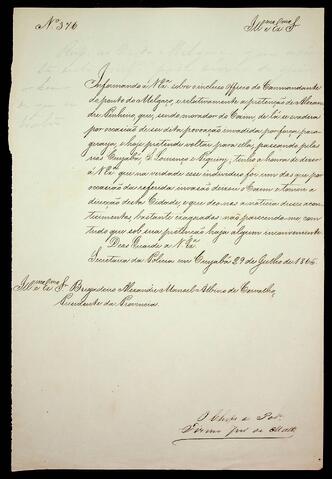 Nº 376
Illmo e Exmo Sr.
Informando á V. Exa. sobre o incluso officio do Commandante
do ponto de Melgaço, e relativamente a pretenção de Alexan
dre Pinheiro, que, sendo morador do Caim, de la se evadira
por occasião de ser dita povoação invadida por força para-
guaya, e hoje pretende voltar para ella, passando pelos
rios Cuyabá, S. Lourenço e Piquiry, tenho a honra de dizer
á V. Exa. que na verdade esse individuo foi um dos que por
occasião da referida invasão deixou o Caim e tomou a
direcção desta Cidade, e que deo nas noticias desses acon-
tecimentos, bastante exageradas, não parecendo-me com
tudo que sob sua pretenção haja algum inconveniente.
Deos Guarde a V. Exa.
Secretaria da Policia em Cuyabá 29 de Julho de 1865
Illmo e Exmo Sr. Brigadeiro Alexandre Manoel Albino de Carvalho,
Presidente da Provincia.
O Chefe de Pol.
Firmo José de Matt.